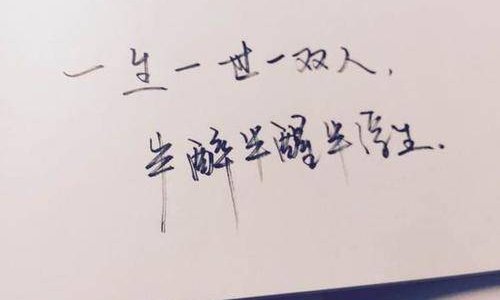 一生一世一双人.
半醉半醒半浮生.